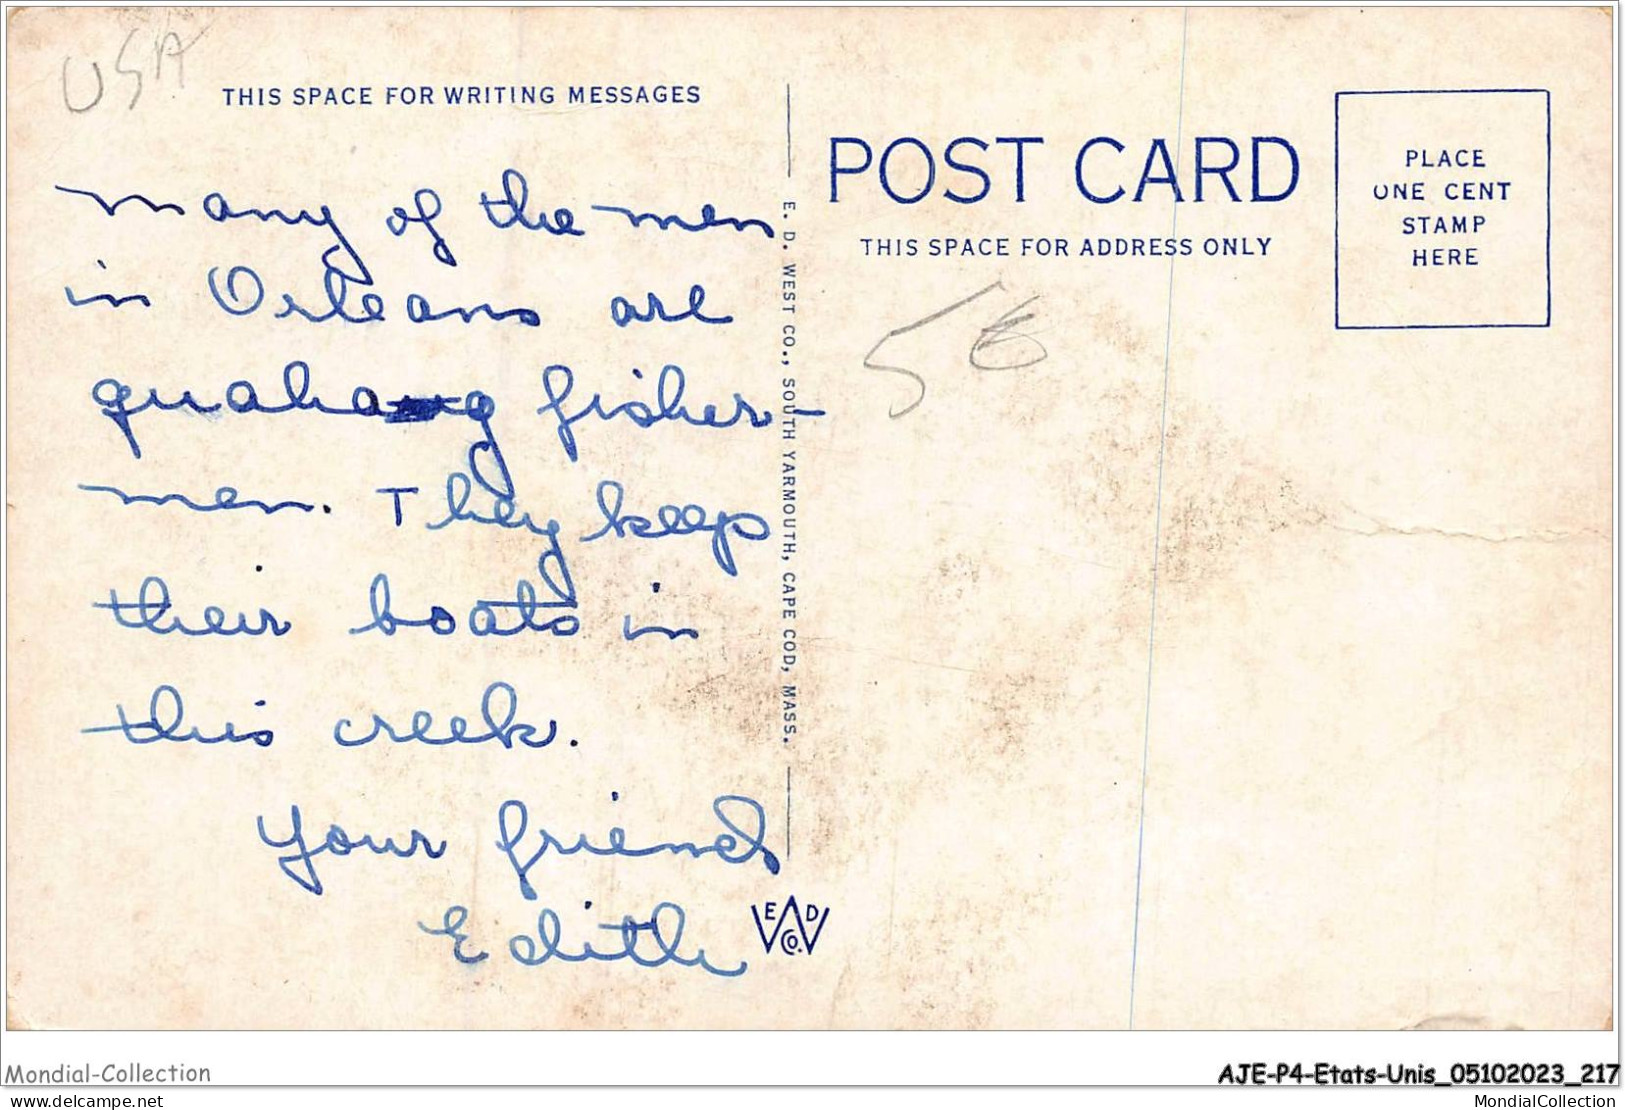 USA
THIS SPACE FOR WRITING MESSAGES
many of the men
in Orleans are
quahaug fisher-
men. They keep
their boats in
this creek.
Your friend
Edith
E. D. WEST CO., SOUTH YARMOUTH, CAPE COD, MASS.
E D W CO.
POST CARD
THIS SPACE FOR ADDRESS ONLY
PLACE
ONE CENT
STAMP
HERE
5€
Mondial-Collection
AJE-P4-Etats-Unis_05102023_217
delcampe.net
MondialCollection